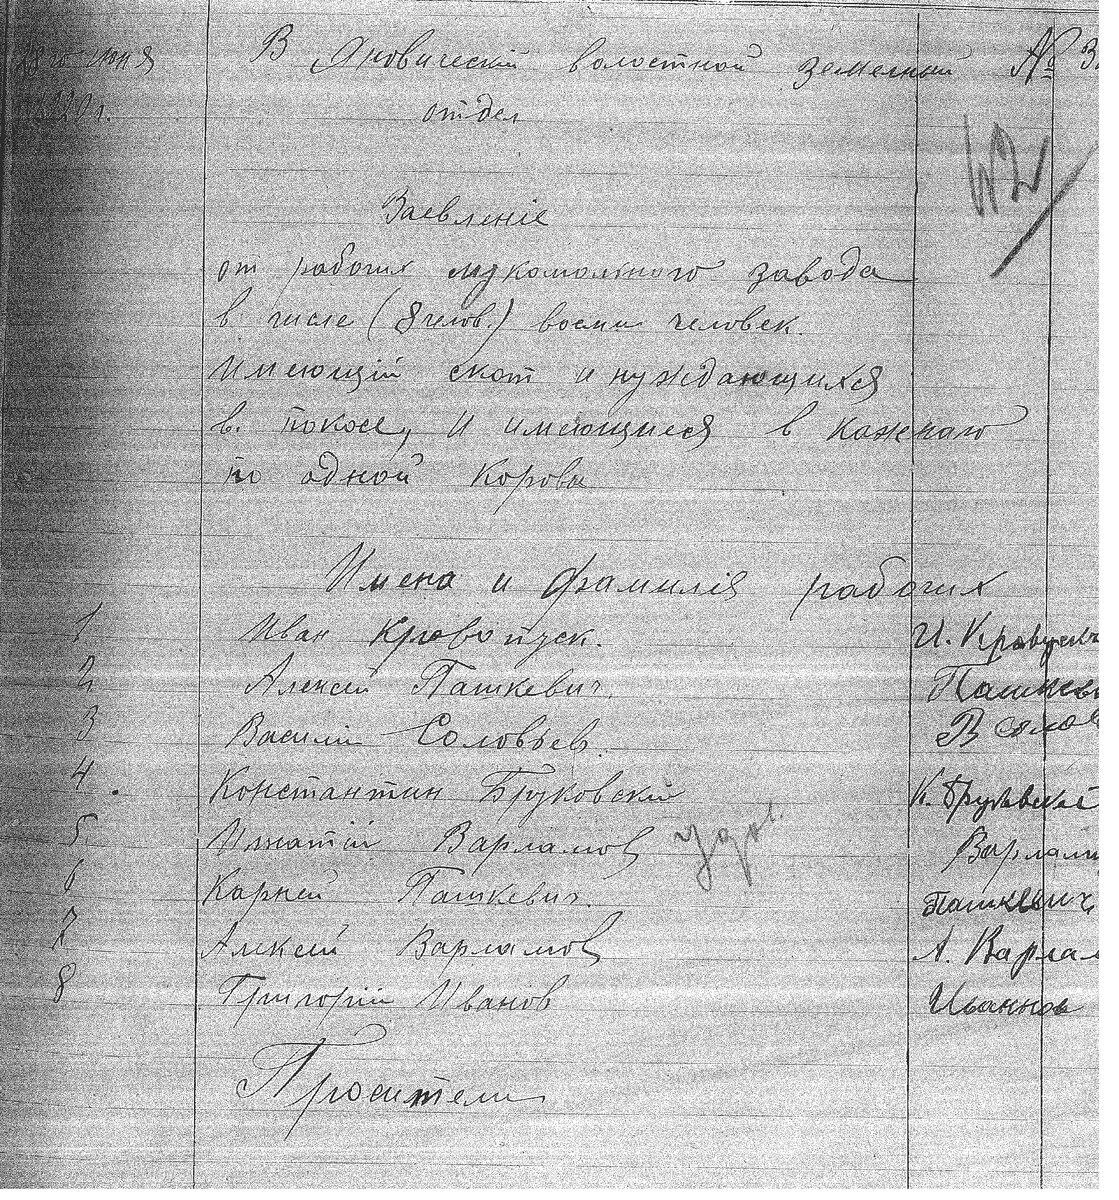 28 го июня В Яновический волостной земельный №
1920 г. отдел
42
Заевленіе
от рабочих мукомольного завода
в числе (8 челов.) восми человек.
Имеющій скот и нуждающихся
в. покосе, и имеющиеся в кажнаю
по одной корова
Имена и фамилія рабочих
1 Иван Кровопуск.
2 Алексей Пашкевич. Пашкеви
3 Василий Соловьев.
4. Константин Бруковский К. Бруковской
5 Игнатій Варламов Варлам
6 Карней Пашкевич. Пашкевич
7 Алексей Варламов А. Варлам
8 Григорій Иванов Иванов
Просители